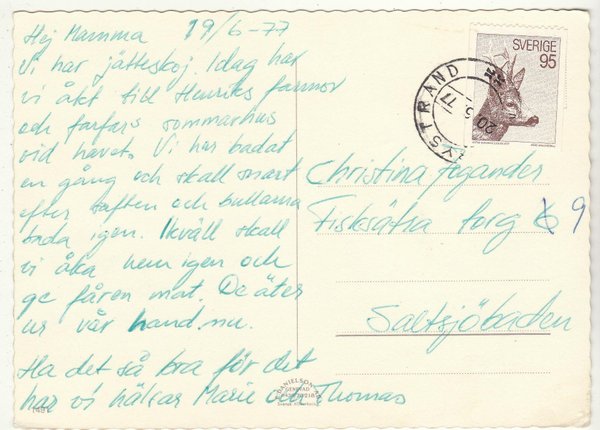 Hej Mamma 19/6-77
Vi har jätteskoj. Idag har
vi åkt till Henriks farmor
och farfars sommarhus
vid havet. Vi har badat
en gång och skall snart
efter saften och bullarna
bada igen. Ikväll skall
vi åka hem igen och
ge fåren mat. De äter
ur vår hand nu.
Ha det så bra för det
har vi hälsar Marie och Thomas
SVERIGE
95
YSTRAND
77
Christina Fogander
Fisksätra torg 9
Saltsjöbaden
DANIELSON